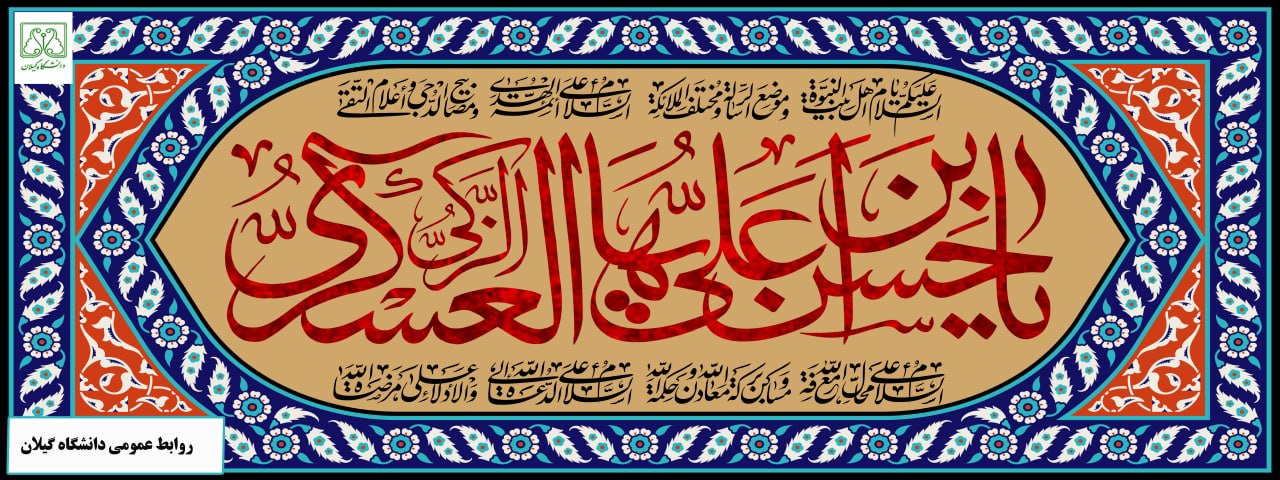 دانشگاه گیلان
السلام علیکم یا اهل بیت النبوة و موضع الرسالة و مختلف الملائکة السلام علی ائمة الهدی و مصابیح الدجی و أعلام التقی
یا حسن بن علی ایها الزکی العسکری
السلام علی محال معرفة الله و مساکن برکة الله و معادن حکمة الله السلام علی الدعاة الی الله و الادلاء علی مرضات الله
روابط عمومی دانشگاه گیلان